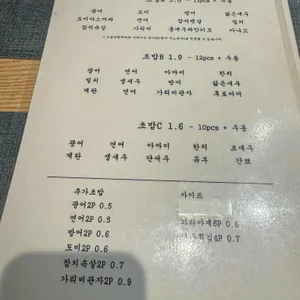 광어 도미 방어 삶은새우
도미마스까와 연어 참치뱃살 참치
참치속살 가리비 아나고
초밥B 1.9 - 12pcs + 우동
광어 연어 아까미 한치
밀치 생새우 방어 삶은새우
계란 연어 가리비관자 후토마끼
초밥C 1.6 - 10pcs + 우동
광어 연어 아까미 한치 초새우
계란 생새우 단새우 유부 간표
추가초밥 사이드
광어2P 0.5
연어2P 0.5 가라아게6P 0.6
방어2P 0.6 4P 0.7
도미2P 0.6
참치속살2P 0.7
가리비관자2P 0.9